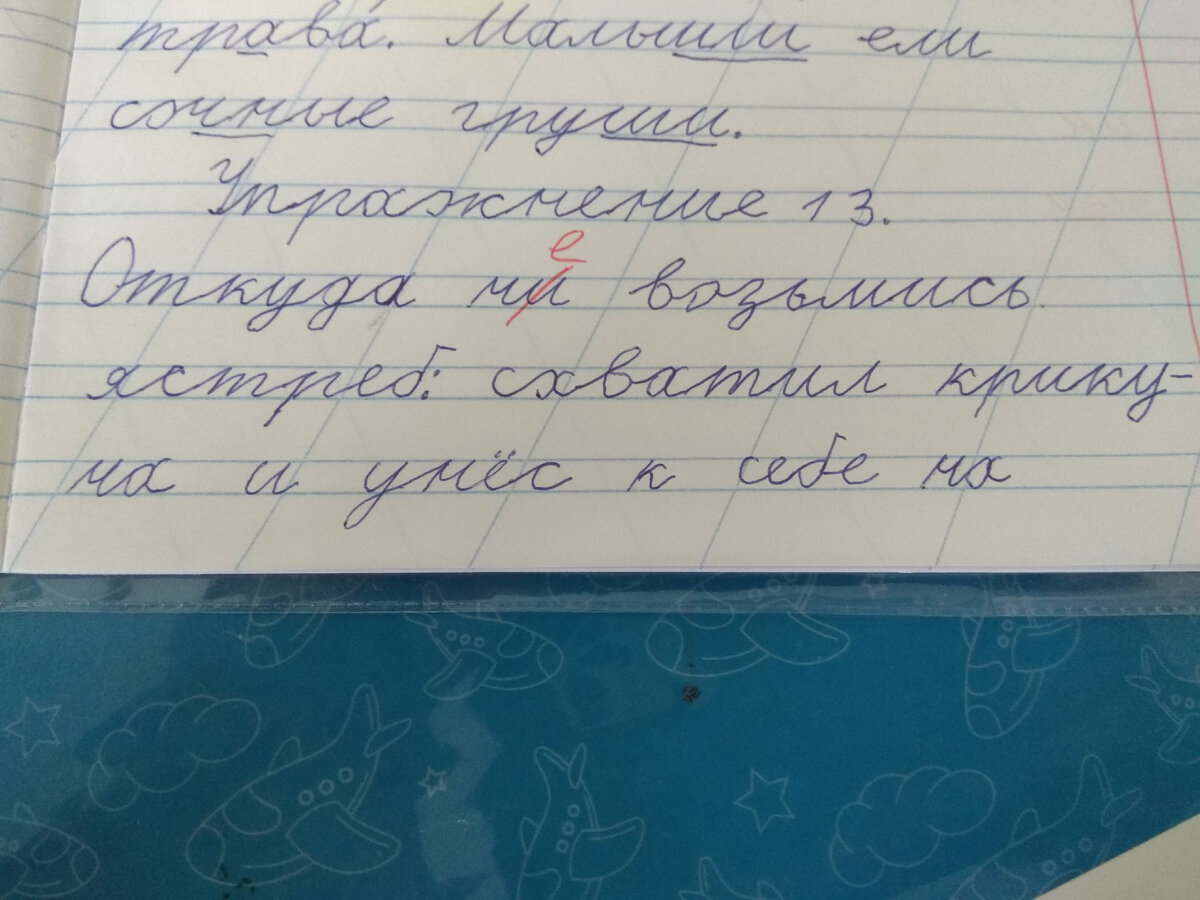 трава́. Малыши ели
сочные груши.
Упражнение 13.
е
Откуда ни возьмись
ястреб: схватил крику-
на и унёс к себе на